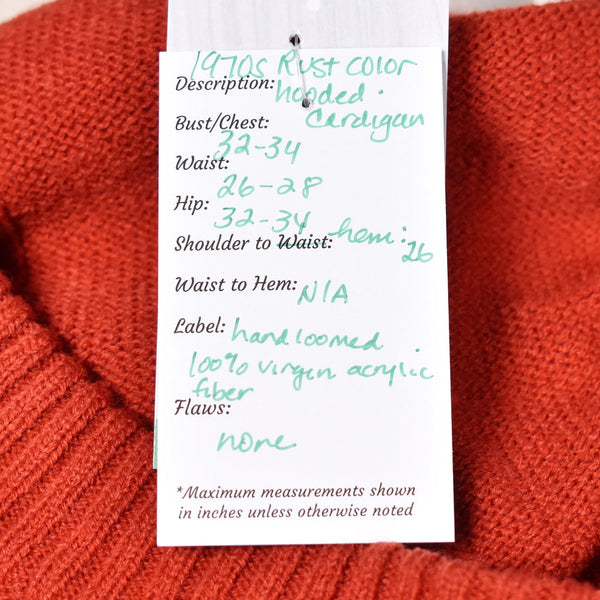 1970s Rust color
Description: hooded
Bust/Chest: Cardigan
32-34
Waist:
26-28
Hip:
32-34
Shoulder to Waist: hem: 26
Waist to Hem: N/A
Label: handloomed
100% virgin acrylic
fiber
Flaws:
none
*Maximum measurements shown
in inches unless otherwise noted